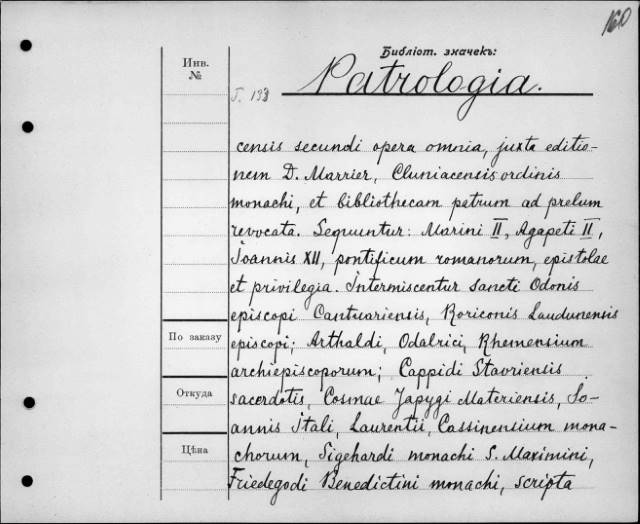 160
Библіот. значекъ:
Patrologia.
Инв.
№
T. 133
censis secundi opera omnia, juxta editio-
nem D. Marrier, Cluniacensis ordinis
monachi, et bibliothecam patrum ad prelum
revocata. Sequuntur: Marini II, Agapeti II,
Joannis XII, pontificum romanorum, epistolae
et privilegia. Intermiscentur sancti Odonis
episcopi Cantuariensis, Roriconis Laudunensis
По заказу
episcopi; Arthaldi, Odalrici, Rhemensium
archiepiscoporum; Cappidi Stavriensis
Откуда
sacerdotis, Cosmae Japygi Materiensis, Jo-
annis Itali, Laurentii, Cassinensium mona-
Цѣна
chorum, Sigehardi monachi S. Maximini,
Friedegodi Benedictini monachi, scripta